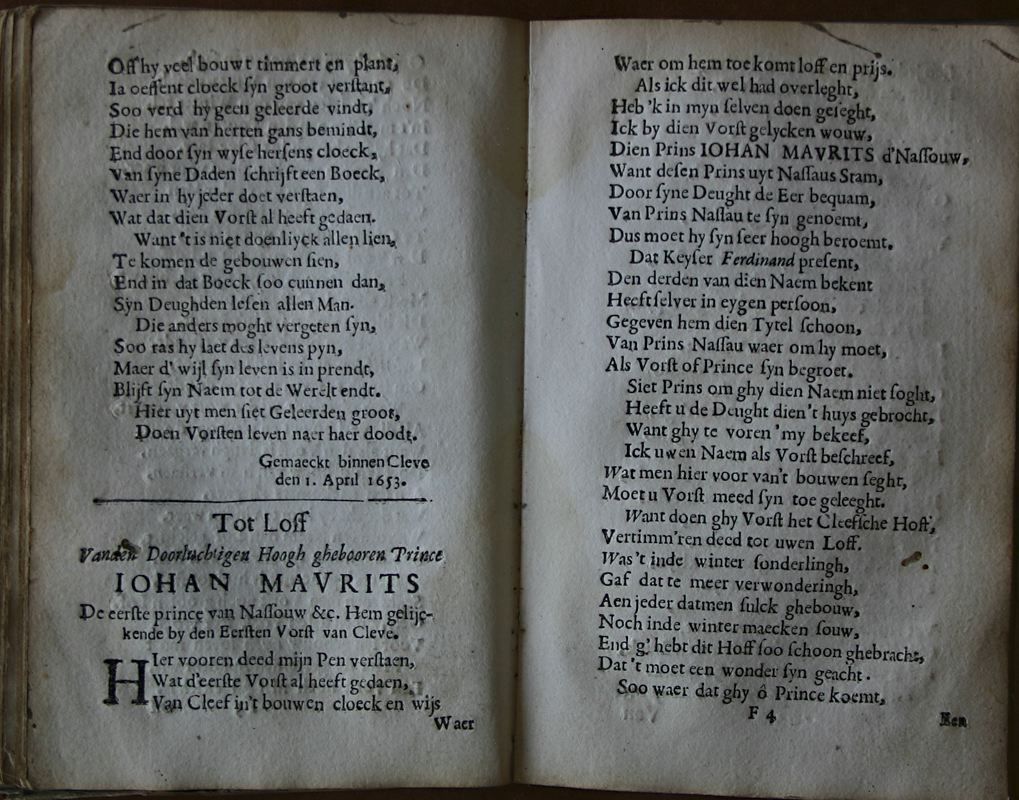 Off hy veel bouwt timmert en plant,
Ia oeffent cloeck syn groot verstant,
Soo verd hy geen geleerde vindt,
Die hem van herten gans bemindt,
End door syn wyse hersens cloeck,
Van syne Daden schrijft een Boeck,
Waer in hy jeder doet verstaen,
Wat dat dien Vorst al heeft gedaen.
Want 't is niet doenliyck allen lien,
Te komen de gebouwen sien,
End in dat Boeck soo cunnen dan,
Syn Deughden lesen allen Man.
Die anders moght vergeten syn,
Soo ras hy laet des levens pyn,
Maer d' wijl syn leven is in prendt,
Blijft syn Naem tot de Werelt endt.
Hier uyt men siet Geleerden groot,
Doen Vorsten leven naer haer doodt.
Gemaeckt binnen Cleve
den 1. April 1653.
Tot Loff
Vanden Doorluchtigen Hoogh ghebooren Prince
IOHAN MAVRITS
De eerste prince van Nassouw &c. Hem gelijc-
kende by den Eersten Vorst van Cleve.
HIer vooren deed mijn Pen verstaen,
Wat d'eerste Vorst al heeft gedaen,
Van Cleef in't bouwen cloeck en wijs
Waer
Waer om hem toe komt loff en prijs.
Als ick dit wel had overleght,
Heb 'k in myn selven doen geseght,
Ick by dien Vorst gelycken wouw,
Dien Prins IOHAN MAVRITS d'Nassouw,
Want desen Prins uyt Nassaus Stam,
Door syne Deught de Eer bequam,
Van Prins Nassau te syn genoemt,
Dus moet hy syn seer hoogh beroemt.
Dat Keyser Ferdinand present,
Den derden van dien Naem bekent
Heeft selver in eygen persoon,
Gegeven hem dien Tytel schoon,
Van Prins Nassau waer om hy moet,
Als Vorst of Prince syn begroet.
Siet Prins om ghy dien Naem niet soght,
Heeft u de Deught dien't huys gebrocht,
Want ghy te voren 'my bekeef,
Ick uwen Naem als Vorst beschreef,
Wat men hier voor van't bouwen seght,
Moet u Vorst meed syn toe geleeght.
Want doen ghy Vorst het Cleefsche Hoff,
Vertimm'ren deed tot uwen Loff.
Was't inde winter sonderlingh,
Gaf dat te meer verwonderingh,
Aen jeder datmen sulck ghebouw,
Noch inde winter maecken souw,
End g' hebt dit Hoff soo schoon ghebracht,
Dat 't moet een wonder syn geacht.
Soo waer dat ghy ô Prince koemt,
F 4
Een